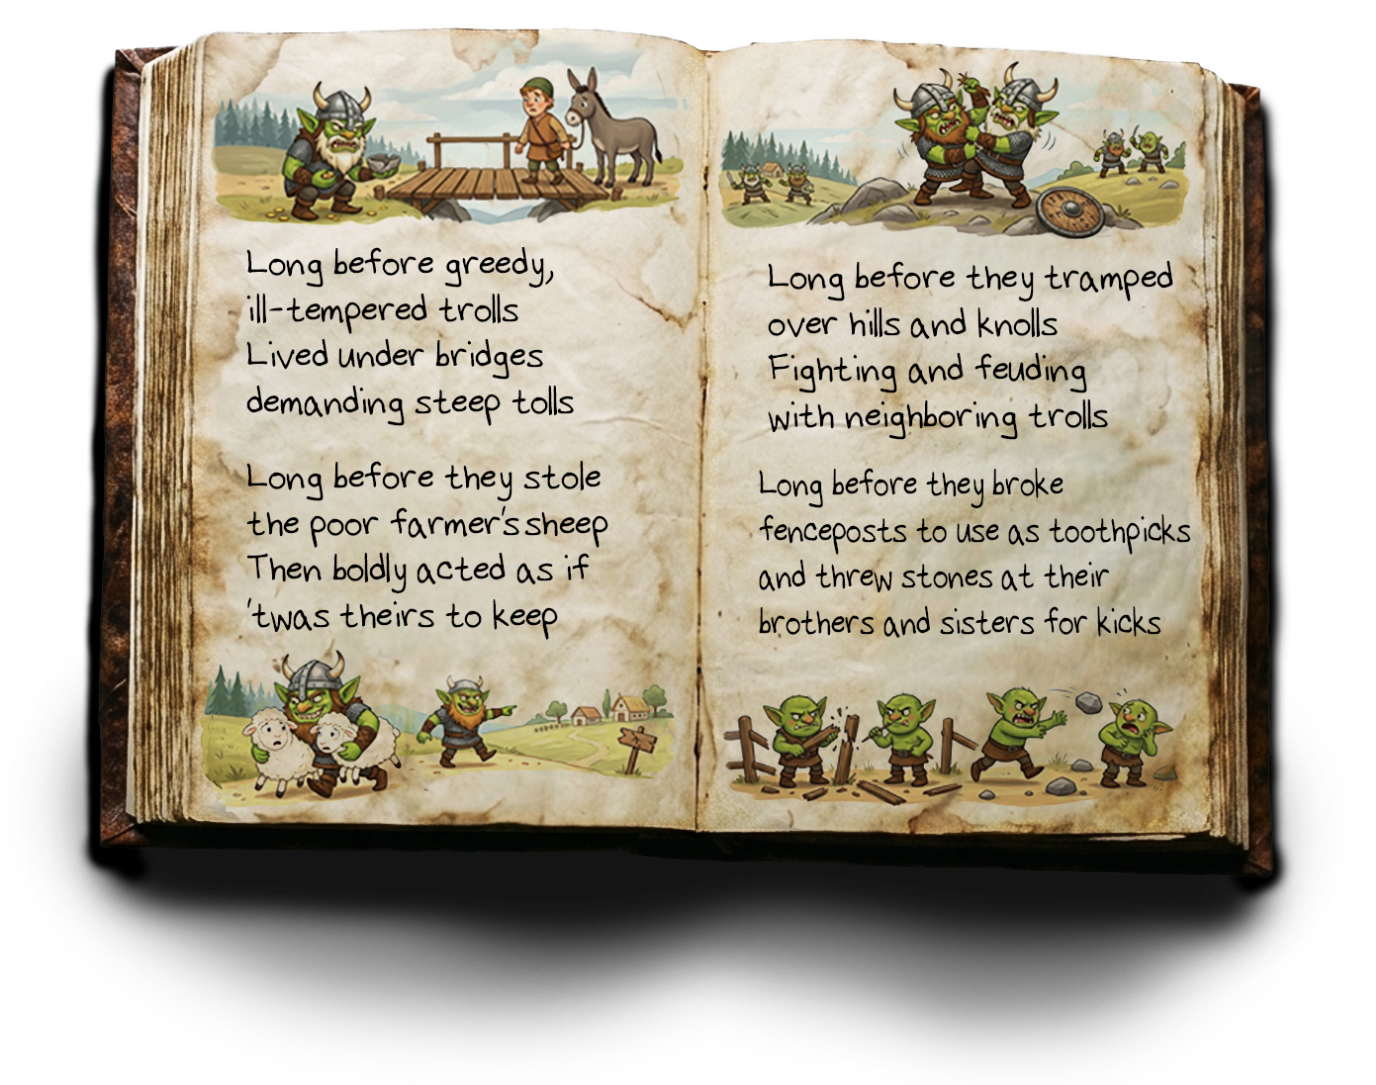 Long before greedy,
ill-tempered trolls
Lived under bridges
demanding steep tolls
Long before they stole
the poor farmer's sheep
Then boldly acted as if
'twas theirs to keep
Long before they tramped
over hills and knolls
Fighting and feuding
with neighboring trolls
Long before they broke
fenceposts to use as toothpicks
and threw stones at their
brothers and sisters for kicks